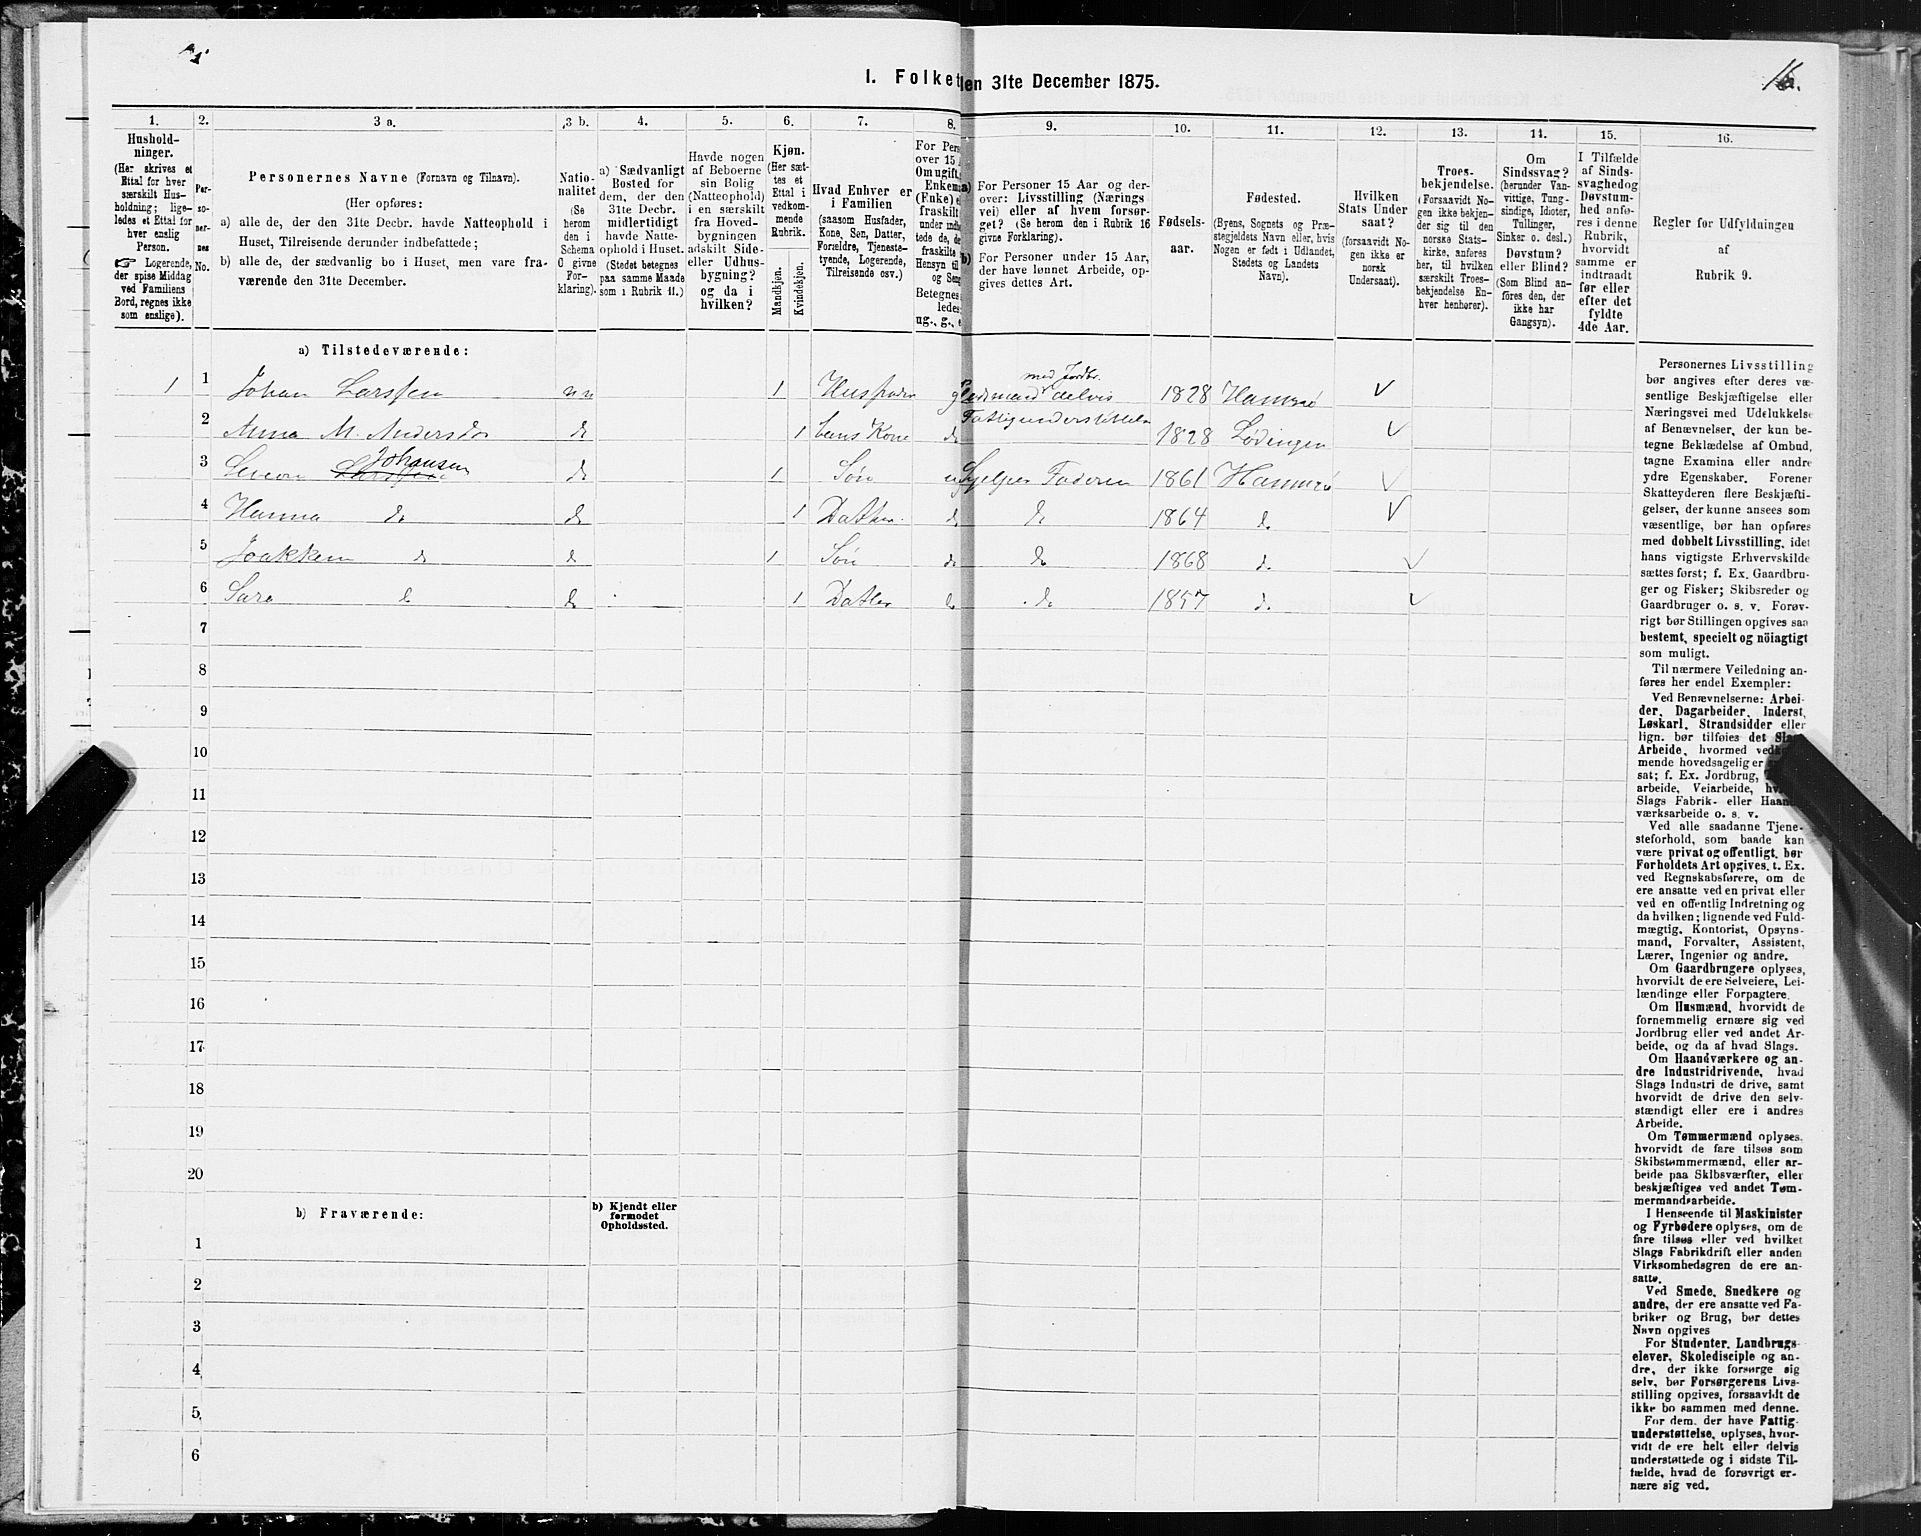 16.
I. Folket den 31te December 1875.
1. 2. 3 a. 3 b. 4. 5. 6. 7. 8. 9. 10. 11. 12. 13. 14. 15. 16.
Hushold-
ninger.
(Her skrives et
Ettal for hver
særskilt Hus-
holdning; lige-
ledes et Ettal for
hver enslig
Person.
☞ Logerende,
der spise Middag
ved Familiens
Bord, regnes ikke
som enslige).
Per-
so-
ner-
nes
No.
Personernes Navne (Fornavn og Tilnavn).
(Her opføres:
a) alle de, der den 31te Decbr. havde Natteophold i
Huset, Tilreisende derunder indbefattede;
b) alle de, der sædvanlig bo i Huset, men vare fra-
værende den 31te December.
Natio-
nalitet
(Se
herom
den i
Schema
O givne
For-
klaring).
a) Sædvanligt
Bosted for
dem, der den
31te Decbr.
midlertidigt
havde Natte-
ophold i Huset.
(Stedet betegnes
paa samme Maade
som i Rubrik 11.)
Havde nogen
af Beboerne
sin Bolig
(Natteophold)
i en særskilt
fra Hoved-
bygningen
adskilt Side-
eller Udhus-
bygning?
og da i
hvilken?
Kjøn.
(Her sæt-
tes et
Ettal i
vedkom-
mende
Rubrik.
Mandkjøn.
Kvindekjøn.
Hvad Enhver er
i Familien
(saasom Husfader,
Kone, Søn, Datter,
Forældre, Tjeneste-
tyende, Logerende,
Tilreisende osv.)
For Pers
over 15 A
Om ugift,
Enkem
(Enke) e
fraskilt
under indb
tede de, d
fraskilte
Hensyn til
og Seng
Betegnes
ledes:
ug., g., e
a) For Personer 15 Aar og der-
over: Livsstilling (Nærings
vei) eller af hvem forsør-
get? (Se herom den i Rubrik 16
givne Forklaring).
b) For Personer under 15 Aar,
der have lønnet Arbeide, op-
gives dettes Art.
Fødsels-
aar.
Fødested.
(Byens, Sognets og Præ-
stegjeldets Navn eller, hvis
Nogen er født i Udlandet,
Stedets og Landets
Navn).
Hvilken
Stats Under
saat?
(forsaavidt No-
gen ikke er
norsk
Undersaat).
Troes-
bekjendelse.
(Forsaavidt No-
gen ikke bekjen-
der sig til den
norske Stats-
kirke, anføres
her, til hvilken
særskilt Troes-
bekjendelse En-
hver henhører).
Om
Sindssvag?
(herunder Van-
vittige, Tung-
sindige, Idioter,
Tullinger,
Sinker o. desl.)
Døvstum?
eller Blind?
(Som Blind an-
føres den, der
ikke har
Gangsyn).
I Tilfælde
af Sinds-
svaghed og
Døvstum-
hed anfø-
res i denne
Rubrik,
hvorvidt
samme er
indtraadt
før eller
efter det
fyldte
4de Aar.
Regler for Udfyldningen
af
Rubrik 9.
a) Tilstedeværende:
med Jordbr.
1 1 Johan Larssen nn 1 Husfader g Husmand delvis 1828 Hamerø √
Fattigunderstøttelse
2 Anna M. Andersdr do 1 hans Kone do 1828 Lødingen √
Johansen
3 Simon Larssen do 1 Søn ug Hjelper Faderen 1861 Hamerø √
4 Hanna do do 1 Datter do do 1864 do √
5 Joakkem do do 1 Søn do do 1868 do √
6 Sara do do 1 Datter do do 1857 do √
7
8
9
10
11
12
13
14
15
16
17
18
19
20
b) Fraværende:
b) Kjendt eller
formodet
Opholdssted.
1
2
3
4
5
6
Personernes Livsstilling
bør angives efter deres væ-
sentlige Beskjæftigelse eller
Næringsvei med Udelukkelse
af Benævnelser, der kun be-
tegne Beklædelse af Ombud,
tagne Examina eller andre
ydre Egenskaber. Forener
Skatteyderen flere Beskjæfti-
gelser, der kunne ansees som
væsentlige, bør han opføres
med dobbelt Livsstilling, idet
hans vigtigste Erhvervskilde
sættes først; f. Ex. Gaardbru-
ger og Fisker; Skibsreder og
Gaardbruger o. s. v. Forøv-
rigt bør Stillingen opgives saa
bestemt, specielt og nöiagtigt
som muligt.
Til nærmere Veiledning an-
føres her endel Exempler:
Ved Benævnelserne: Arbei-
der, Dagarbeider, Inderst,
Løskarl, Strandsidder eller
lign. bør tilføies det Slags
Arbeide, hvormed vedkom-
mende hovedsagelig er
sat; f. Ex. Jordbrug,
arbeide, Veiarbeide,
Slags Fabrik- eller Haand-
værksarbeide o. s. v.
Ved alle saadanne Tjene-
steforhold, som baade kan
være privat og offentligt, bør
Forholdets Art opgives, t. Ex.
ved Regnskabsførere, om de
ere ansatte ved en privat eller
ved en offentlig Indretning og
da hvilken; lignende ved Fuld-
mægtig, Kontorist, Opsyns-
mand, Forvalter, Assistent,
Lærer, Ingeniør og andre.
Om Gaardbrugere oplyses,
hvorvidt de ere Selveiere, Lei-
lændinge eller Forpagtere.
Om Husmænd, hvorvidt de
fornemmelig ernære sig ved
Jordbrug eller ved andet Ar-
beide, og da af hvad Slags.
Om Haandværkere og an-
dre Industridrivende, hvad
Slags Industri de drive, samt
hvorvidt de drive den selv-
stændigt eller ere i andres
Arbeide.
Om Tømmermænd oplyses,
hvorvidt de fare tilsøs som
Skibstømmermænd, eller ar-
beide paa Skibsværfter, eller
beskjæftiges ved andet Tøm-
mermandsarbeide.
I Henseende til Maskinister
og Fyrbødere oplyses, om de
fare tilsøs eller ved hvilket
Slags Fabrikdrift eller anden
Virksomhedsgren de ere an-
satte.
Ved Smede, Snedkere og
andre, der ere ansatte ved Fa-
briker og Brug, bør dettes
Navn opgives
For Studenter, Landbrugs-
elever, Skoledisciple og an-
dre, der ikke forsørge sig
selv, bør Forsørgerens Livs-
stilling opgives, forsaavidt de
ikke bo sammen med denne.
For dem, der have Fattig-
understøttelse, oplyses, hvor-
vidt de ere helt eller delvis
understøttede og i sidste Til-
fælde, hvad de forøvrigt er-
nære sig ved.